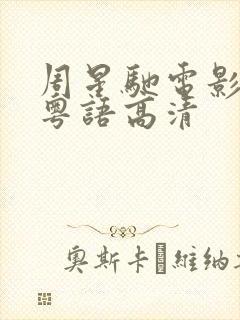 周星馳電影
粵語高清
奧斯卡維納